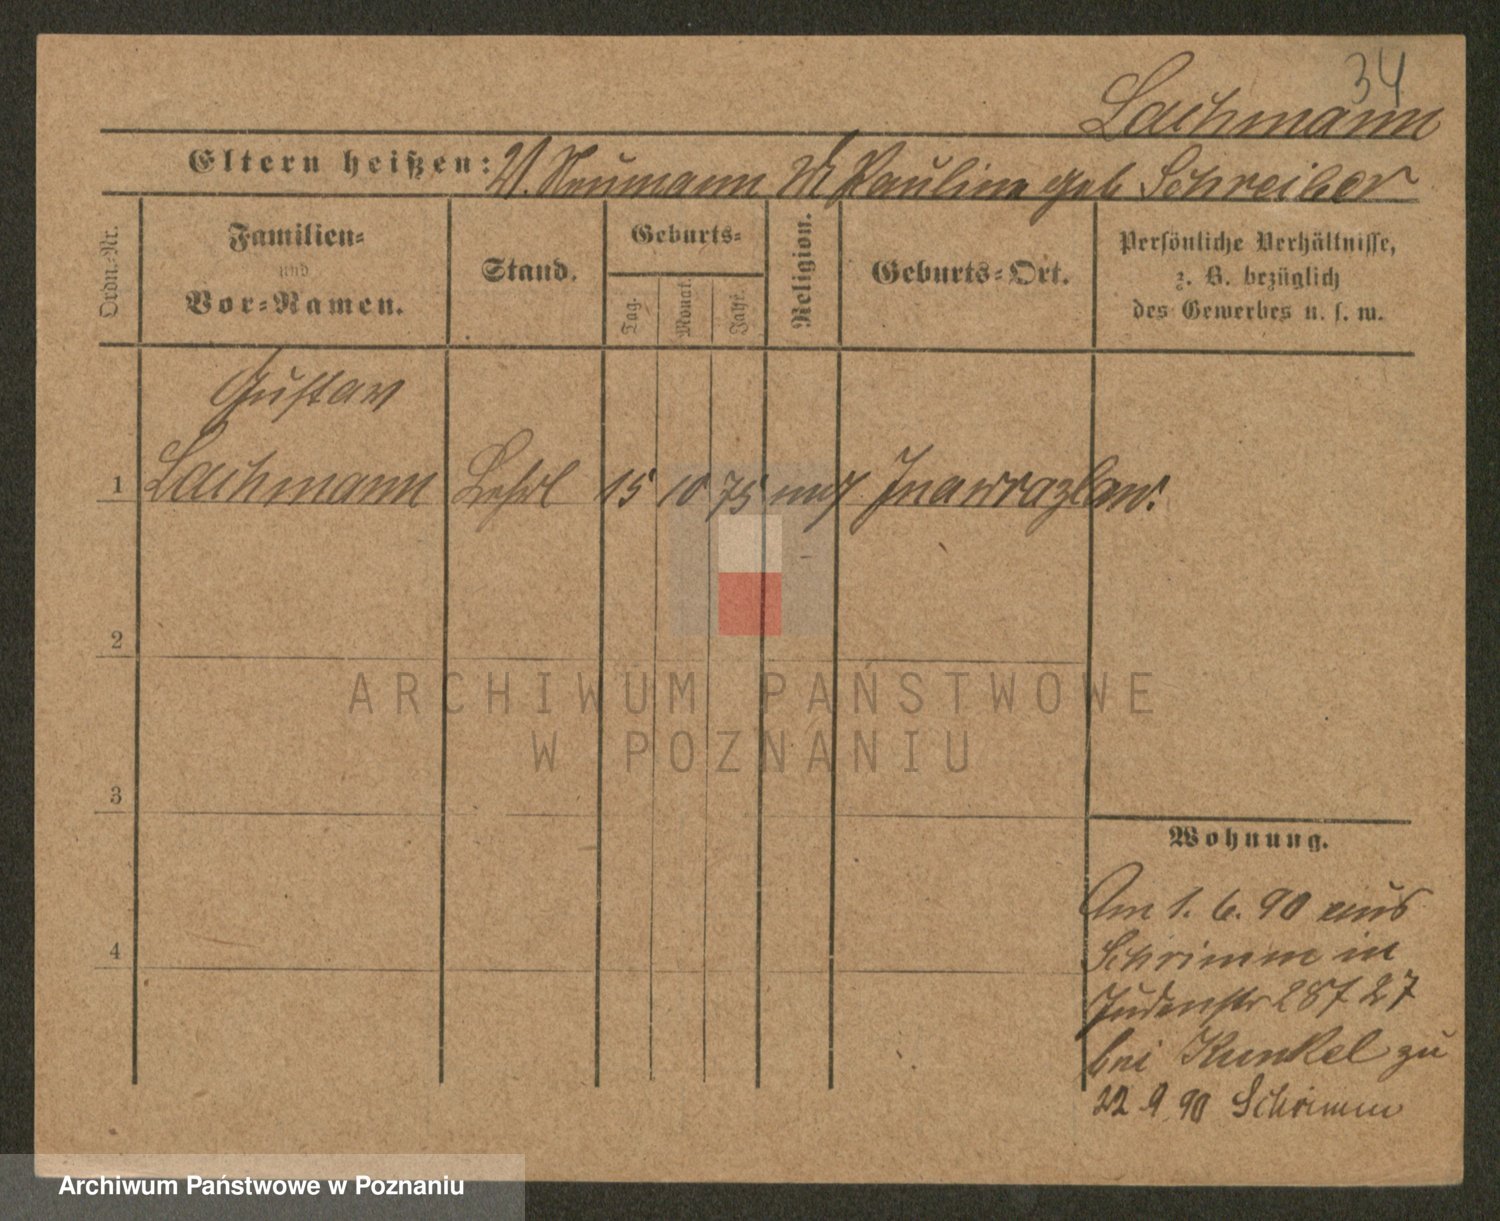 34
Lachmann
Eltern heißen: V. Neumann M Pauline geb Schreiber
Ordn.-Nr.
Familien-
und
Vor-Namen.
Stand.
Geburts-
Tag.
Monat.
Jahr.
Religion.
Geburts-Ort.
Persönliche Verhältnisse,
z. B. bezüglich
des Gewerbes u. s. w.
Gustav
1 Lachmann Lehrl 15 10 75 mos Inowrazlaw.
2
3
4
Wohnung.
Am 1. 6. 90 aus
Schrimm in
Judenstr 28 27
bei Kunkel zu
22 9 90 Schrimm
ARCHIWUM PAŃSTWOWE
W POZNANIU
Archiwum Państwowe w Poznaniu